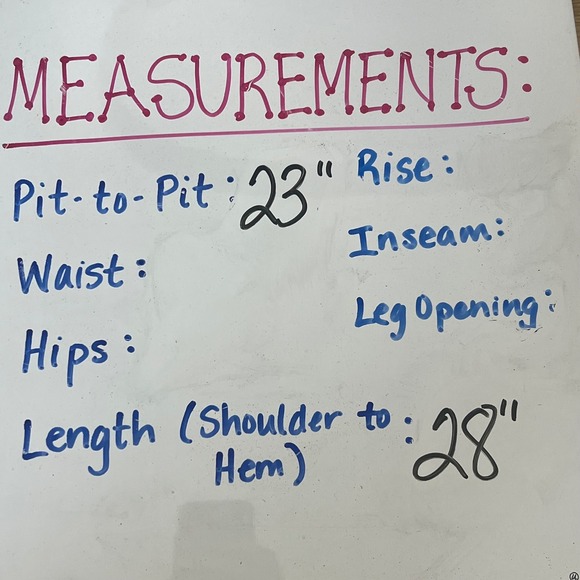 MEASUREMENTS:
Pit-to-Pit: 23"
Waist:
Hips:
Length (Shoulder to Hem): 28"
Rise:
Inseam:
Leg Opening: